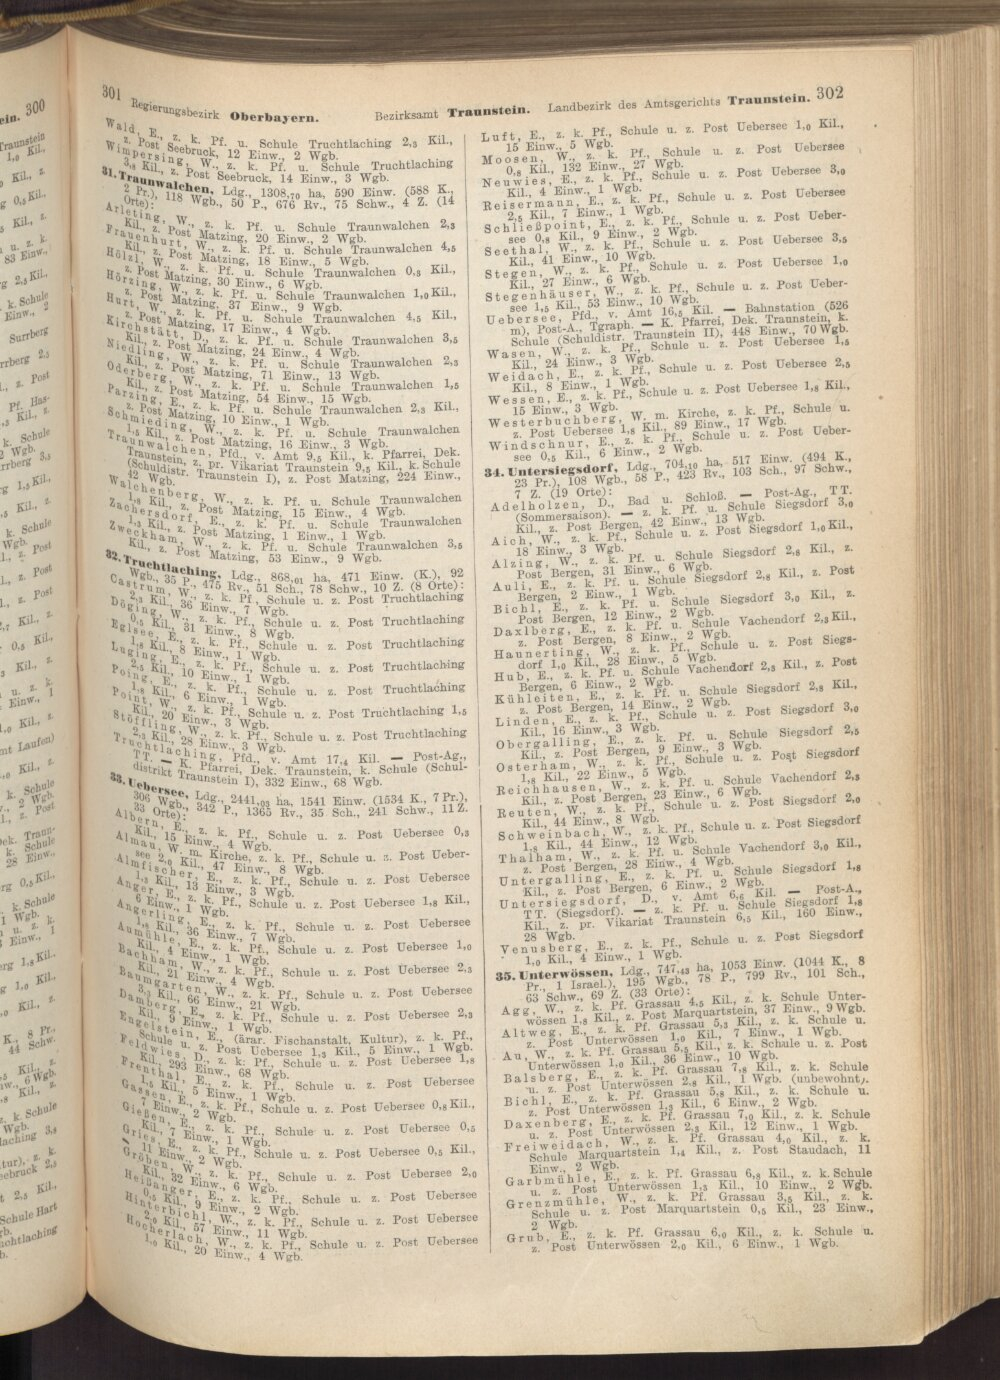 301 Regierungsbezirk Oberbayern. Bezirksamt Traunstein. Landbezirk des Amtsgerichts Traunstein. 302
Wald, E., z. k. Pf. u. Schule Truchtlaching 2,3 Kil.,
z. Post Seebruck, 12 Einw., 2 Wgb.
Wimpersing, W., z. k. Pf. u. Schule Truchtlaching
3,8 Kil., z. Post Seebruck, 14 Einw., 3 Wgb.
31. Traunwalchen, Ldg., 1308,70 ha, 590 Einw. (588 K.,
2 Pr.), 118 Wgb., 50 P., 676 Rv., 75 Schw., 4 Z. (14
Orte):
Arleting, W., z. k. Pf. u. Schule Traunwalchen 2,3
Kil., z. Post Matzing, 20 Einw., 2 Wgb.
Frauenhurt, W., z. k. Pf. u. Schule Traunwalchen 4,5
Kil., z. Post Matzing, 18 Einw., 5 Wgb.
Hölzl, W., z. k. Pf. u. Schule Traunwalchen 0,8 Kil.,
z. Post Matzing, 30 Einw., 6 Wgb.
Hörzing, W., z. k. Pf. u. Schule Traunwalchen 1,0 Kil.,
z. Post Matzing, 37 Einw., 9 Wgb.
Hurt, W., z. k. Pf. u. Schule Traunwalchen 4,5 Kil.,
z. Post Matzing, 17 Einw., 4 Wgb.
Kirchstätt, D., z. k. Pf. u. Schule Traunwalchen 3,5
Kil., z. Post Matzing, 24 Einw., 4 Wgb.
Niedling, W., z. k. Pf. u. Schule Traunwalchen 2,3
Kil., z. Post Matzing, 71 Einw., 13 Wgb.
Oderberg, W., z. k. Pf. u. Schule Traunwalchen 1,5
Kil., z. Post Matzing, 54 Einw., 15 Wgb.
Parzing, E., z. k. Pf. u. Schule Traunwalchen 2,3 Kil.,
z. Post Matzing, 10 Einw., 1 Wgb.
Schmieding, W., z. k. Pf. u. Schule Traunwalchen
1,5 Kil., z. Post Matzing, 16 Einw., 3 Wgb.
Traunwalchen, Pfd., v. Amt 9,5 Kil., k. Pfarrei, Dek.
Traunstein, z. pr. Vikariat Traunstein 9,5 Kil., k. Schule
(Schuldistr. Traunstein I), z. Post Matzing, 224 Einw.,
42 Wgb.
Walchenberg, W., z. k. Pf. u. Schule Traunwalchen
1,8 Kil., z. Post Matzing, 15 Einw., 4 Wgb.
Zachersdorf, E., z. k. Pf. u. Schule Traunwalchen
1,3 Kil., z. Post Matzing, 1 Einw., 1 Wgb.
Zweckham, W., z. k. Pf. u. Schule Traunwalchen 3,5
Kil., z. Post Matzing, 53 Einw., 9 Wgb.
32. Truchtlaching, Ldg., 868,01 ha, 471 Einw. (K.), 92
Wgb., 35 P., 475 Rv., 51 Sch., 78 Schw., 10 Z. (8 Orte):
Castrum, W., z. k. Pf., Schule u. z. Post Truchtlaching
2,3 Kil., 36 Einw., 7 Wgb.
Döging, W., z. k. Pf., Schule u. z. Post Truchtlaching
0,5 Kil., 31 Einw., 8 Wgb.
Eglsee, E., z. k. Pf., Schule u. z. Post Truchtlaching
1,8 Kil., 8 Einw., 1 Wgb.
Luging, E., z. k. Pf., Schule u. z. Post Truchtlaching
2,5 Kil., 10 Einw., 1 Wgb.
Poing, E., z. k. Pf., Schule u. z. Post Truchtlaching
1,8 Kil., 6 Einw., 1 Wgb.
Point, W., z. k. Pf., Schule u. z. Post Truchtlaching 1,5
Kil., 20 Einw., 3 Wgb.
Stöffling, W., z. k. Pf., Schule u. z. Post Truchtlaching
2,3 Kil., 28 Einw., 3 Wgb.
Truchtlaching, Pfd., v. Amt 17,4 Kil. — Post-Ag.,
TT. — K. Pfarrei, Dek. Traunstein, k. Schule (Schul-
distrikt Traunstein I), 332 Einw., 68 Wgb.
33. Uebersee, Ldg., 2441,03 ha, 1541 Einw. (1534 K., 7 Pr.),
306 Wgb., 342 P., 1365 Rv., 35 Sch., 241 Schw., 11 Z.
33 Orte):
Albern, E., z. k. Pf., Schule u. z. Post Uebersee 0,3
Kil., 15 Einw., 4 Wgb.
Almau, W. m. Kirche, z. k. Pf., Schule u. z. Post Ueber-
see 2,0 Kil., 47 Einw., 8 Wgb.
Almfischer, E., z. k. Pf., Schule u. z. Post Uebersee
1,3 Kil., 13 Einw., 3 Wgb.
Anger, E., z. k. Pf., Schule u. z. Post Uebersee 1,8 Kil.,
6 Einw., 1 Wgb.
Angerling, E., z. k. Pf., Schule u. z. Post Uebersee
Kil., 36 Einw., 7 Wgb.
Aumühle, E., z. k. Pf., Schule u. z. Post Uebersee 1,0
Kil., 4 Einw., 1 Wgb.
Bachham, W., z. k. Pf., Schule u. z. Post Uebersee 2,3
Kil., 21 Einw., 4 Wgb.
Baumgarten, W., z. k. Pf., Schule u. z. Post Uebersee
3,3 Kil., 66 Einw., 21 Wgb.
Damberg, E., z. k. Pf., Schule u. z. Post Uebersee 2,3
Kil., 9 Einw., 1 Wgb.
Engelstein, E., (ärar. Fischanstalt, Kultur), z. k. Pf.,
Schule u. z. Post Uebersee 1,3 Kil., 5 Einw., 1 Wgb.
Feldwies, D., z. k. Pf., Schule u. z. Post Uebersee 1,8
Kil., 293 Einw., 68 Wgb.
Frenthal, E., z. k. Pf., Schule u. z. Post Uebersee
1,5 Kil., 5 Einw., 1 Wgb.
Gassen, E., z. k. Pf., Schule u. z. Post Uebersee 0,8 Kil.,
7 Einw., 2 Wgb.
Gießen, E., z. k. Pf., Schule u. z. Post Uebersee 0,5
Kil., 7 Einw., 1 Wgb.
Gries, E., z. k. Pf., Schule u. z. Post Uebersee 0,5 Kil.,
11 Einw., 2 Wgb.
Gröben, W., z. k. Pf., Schule u. z. Post Uebersee 2,0
Kil., 32 Einw., 6 Wgb.
Heißanger, E., z. k. Pf., Schule u. z. Post Uebersee
0,5 Kil., 9 Einw., 2 Wgb.
Hinterbichl, W., z. k. Pf., Schule u. z. Post Uebersee
2,0 Kil., 57 Einw., 11 Wgb.
Hocherlach, W., z. k. Pf., Schule u. z. Post Uebersee
1,0 Kil., 20 Einw., 4 Wgb.
Luft, E., z. k. Pf., Schule u. z. Post Uebersee 1,0 Kil.,
15 Einw., 5 Wgb.
Moosen, W., z. k. Pf., Schule u. z. Post Uebersee
0,8 Kil., 132 Einw., 27 Wgb.
Neuwies, E., z. k. Pf., Schule u. z. Post Uebersee 3,0
Kil., 4 Einw., 1 Wgb.
Reisermann, E., z. k. Pf., Schule u. z. Post Uebersee
2,5 Kil., 7 Einw., 1 Wgb.
Schließpoint, E., z. k. Pf., Schule u. z. Post Ueber-
see 0,8 Kil., 9 Einw., 2 Wgb.
Seethal, W., z. k. Pf., Schule u. z. Post Uebersee 3,5
Kil., 41 Einw., 10 Wgb.
Stegen, W., z. k. Pf., Schule u. z. Post Uebersee 1,0
Kil., 27 Einw., 6 Wgb.
Stegenhäuser, W., z. k. Pf., Schule u. z. Post Ueber-
see 1,5 Kil., 53 Einw., 10 Wgb.
Uebersee, Pfd., v. Amt 16,5 Kil. — Bahnstation (526
m), Post-A., Tgraph. — K. Pfarrei, Dek. Traunstein, k.
Schule (Schuldistr. Traunstein II), 448 Einw., 70 Wgb.
Wasen, W., z. k. Pf., Schule u. z. Post Uebersee 1,5
Kil., 24 Einw., 3 Wgb.
Weidach, E., z. k. Pf., Schule u. z. Post Uebersee 2,5
Kil., 8 Einw., 1 Wgb.
Wessen, E., z. k. Pf., Schule u. z. Post Uebersee 1,8 Kil.,
15 Einw., 3 Wgb.
Westerbuchberg, W. m. Kirche, z. k. Pf., Schule u.
z. Post Uebersee 1,8 Kil., 89 Einw., 17 Wgb.
Windschnur, E., z. k. Pf., Schule u. z. Post Ueber-
see 0,5 Kil., 6 Einw., 2 Wgb.
34. Untersiegsdorf, Ldg., 704,10 ha, 517 Einw. (494 K.,
23 Pr.), 108 Wgb., 58 P., 423 Rv., 103 Sch., 97 Schw.,
7 Z. (19 Orte):
Adelholzen, D., Bad u. Schloß. — Post-Ag., TT.
(Sommersaison). — z. k. Pf. u. Schule Siegsdorf 3,0
Kil., z. Post Bergen, 42 Einw., 13 Wgb.
Aich, W., z. k. Pf., Schule u. z. Post Siegsdorf 1,0 Kil.,
18 Einw., 3 Wgb.
Alzing, W., z. k. Pf. u. Schule Siegsdorf 2,8 Kil., z.
Post Bergen, 31 Einw., 6 Wgb.
Auli, E., z. k. Pf. u. Schule Siegsdorf 2,8 Kil., z. Post
Bergen, 2 Einw., 1 Wgb.
Bichl, E., z. k. Pf. u. Schule Siegsdorf 3,0 Kil., z.
Post Bergen, 12 Einw., 2 Wgb.
Daxlberg, E., z. k. Pf. u. Schule Vachendorf 2,3 Kil.,
z. Post Bergen, 8 Einw., 2 Wgb.
Haunerting, W., z. k. Pf., Schule u. z. Post Siegs-
dorf 1,0 Kil., 28 Einw., 5 Wgb.
Hub, E., z. k. Pf. u. Schule Vachendorf 2,3 Kil., z. Post
Bergen, 6 Einw., 2 Wgb.
Kühleiten, E., z. k. Pf. u. Schule Siegsdorf 2,8 Kil.,
z. Post Bergen, 14 Einw., 2 Wgb.
Linden, E., z. k. Pf., Schule u. z. Post Siegsdorf 3,0
Kil., 16 Einw., 3 Wgb.
Obergalling, E., z. k. Pf. u. Schule Siegsdorf 2,5
Kil., z. Post Bergen, 9 Einw., 3 Wgb.
Osterham, W., z. k. Pf., Schule u. z. Post Siegsdorf
1,8 Kil., 22 Einw., 5 Wgb.
Reichhausen, W., z. k. Pf. u. Schule Vachendorf 2,3
Kil., z. Post Bergen, 23 Einw., 6 Wgb.
Reuten, W., z. k. Pf., Schule u. z. Post Siegsdorf 2,0
Kil., 44 Einw., 8 Wgb.
Schweinbach, W., z. k. Pf., Schule u. z. Post Siegsdorf
1,8 Kil., 44 Einw., 12 Wgb.
Thalham, W., z. k. Pf. u. Schule Vachendorf 3,0 Kil.,
z. Post Bergen, 28 Einw., 4 Wgb.
Untergalling, E., z. k. Pf. u. Schule Siegsdorf 1,8
Kil., z. Post Bergen, 6 Einw., 2 Wgb.
Untersiegsdorf, D., v. Amt 6,6 Kil. — Post-A.,
TT. (Siegsdorf). — z. k. Pf. u. Schule Siegsdorf 1,8
Kil., z. pr. Vikariat Traunstein 6,5 Kil., 160 Einw.,
28 Wgb.
Venusberg, E., z. k. Pf., Schule u. z. Post Siegsdorf
1,0 Kil., 4 Einw., 1 Wgb.
35. Unterwössen, Ldg., 747,43 ha, 1053 Einw. (1044 K., 8
Pr., 1 Israel.), 195 Wgb., 78 P., 799 Rv., 101 Sch.,
63 Schw., 69 Z. (33 Orte):
Agg, W., z. k. Pf. Grassau 4,5 Kil., z. k. Schule Unter-
wössen 1,8 Kil., z. Post Marquartstein, 37 Einw., 9 Wgb.
Altweg, E., z. k. Pf. Grassau 5,3 Kil., z. k. Schule u.
z. Post Unterwössen 1,0 Kil., 7 Einw., 1 Wgb.
Au, W., z. k. Pf. Grassau 5,5 Kil., z. k. Schule u. z. Post
Unterwössen 1,0 Kil., 36 Einw., 10 Wgb.
Balsberg, E., z. k. Pf. Grassau 7,8 Kil., z. k. Schule
u. z. Post Unterwössen 2,8 Kil., 1 Wgb. (unbewohnt).
Bichl, E., z. k. Pf. Grassau 5,8 Kil., z. k. Schule u.
z. Post Unterwössen 1,3 Kil., 6 Einw., 2 Wgb.
Daxenberg, E., z. k. Pf. Grassau 7,0 Kil., z. k. Schule
u. z. Post Unterwössen 2,3 Kil., 12 Einw., 1 Wgb.
Freiweidach, W., z. k. Pf. Grassau 4,0 Kil., z. k.
Schule Marquartstein 1,4 Kil., z. Post Staudach, 11
Einw., 2 Wgb.
Garbmühle, E., z. k. Pf. Grassau 6,8 Kil., z. k. Schule
u. z. Post Unterwössen 1,3 Kil., 10 Einw., 2 Wgb.
Grenzmühle, W., z. k. Pf. Grassau 3,5 Kil., z. k.
Schule u. z. Post Marquartstein 0,5 Kil., 23 Einw.,
2 Wgb.
Grub, E., z. k. Pf. Grassau 6,0 Kil., z. k. Schule u.
z. Post Unterwössen 2,0 Kil., 6 Einw., 1 Wgb.